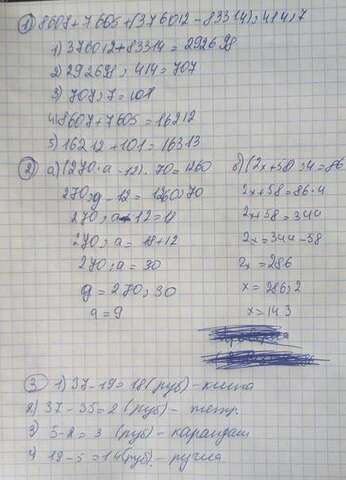 1) 8607+7605+(376012-83314):414:7
1) 376012+83314=292698
2) 292698:414=707
3) 707:7=101
4) 8607+7605=16212
5) 16212+101=16313
2) а) (270:а-12)·70=1260
270:а-12=1260:70
270:а-12=18
270:а=18+12
270:а=30
а=270:30
а=9
б) (2х+58):4=86
2х+58=86·4
2х+58=344
2х=344-58
2х=286
х=286:2
х=143
3) 1) 37-19=18(руб)-книга
2) 37-35=2 (руб)- тетр.
3) 5-2=3 (руб)- карандаш
4) 19-5=14(руб)- ручка